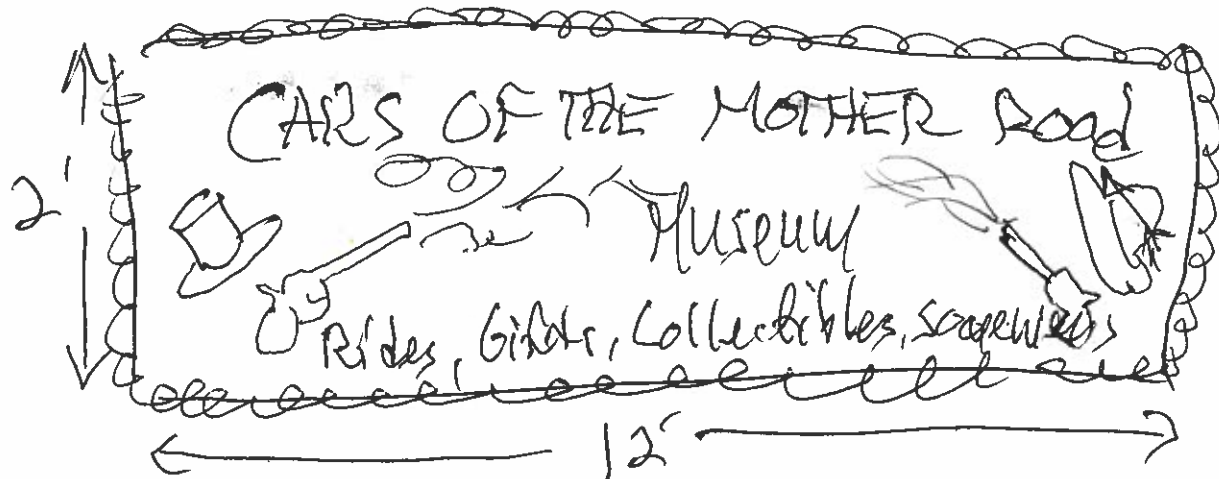 CARS OF THE MOTHER Road
2'
Museum
Rides, Gifts, Collectibles,
12'